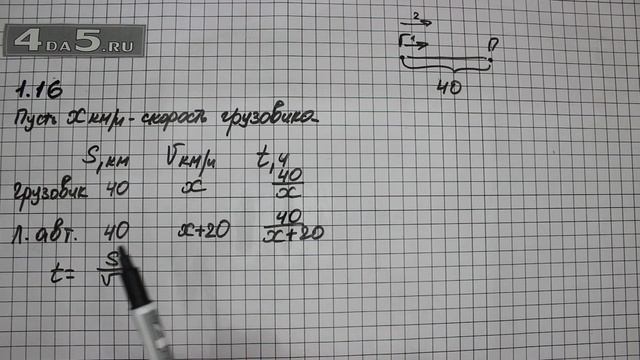 4DA5.RU
1.16
Пусть x км/ч - скорость грузовика.
S, км V км/ч t, ч
грузовик 40 x 40/x
л. авт. 40 x+20 40/(x+20)
t = S/V
2
Г 1 П
40